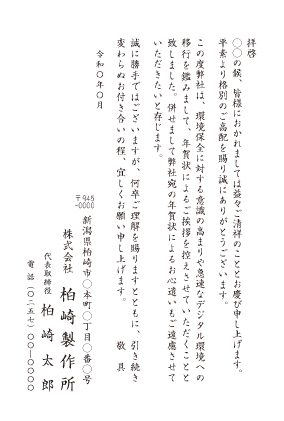 拝啓
○○の候、皆様におかれましては益々ご清祥のこととお慶び申し上げます。
平素より格別のご高配を賜り誠にありがとうございます。
この度弊社は、環境保全に対する意識の高まりや急速なデジタル環境への
移行を鑑みまして、年賀状によるご挨拶を控えさせていただくことと
致しました。併せまして弊社宛の年賀状によるお心遣いもご遠慮させて
いただきたいと存じます。
誠に勝手ではございますが、何卒ご理解を賜りますとともに、引き続き
変わらぬお付き合いの程、宜しくお願い申し上げます。
敬具
令和○年○月
〒945-0000
新潟県柏崎市○本町○丁目○番○号
株式会社 柏崎製作所
代表取締役 柏崎太郎
電話(○二五七)○○-○○○○